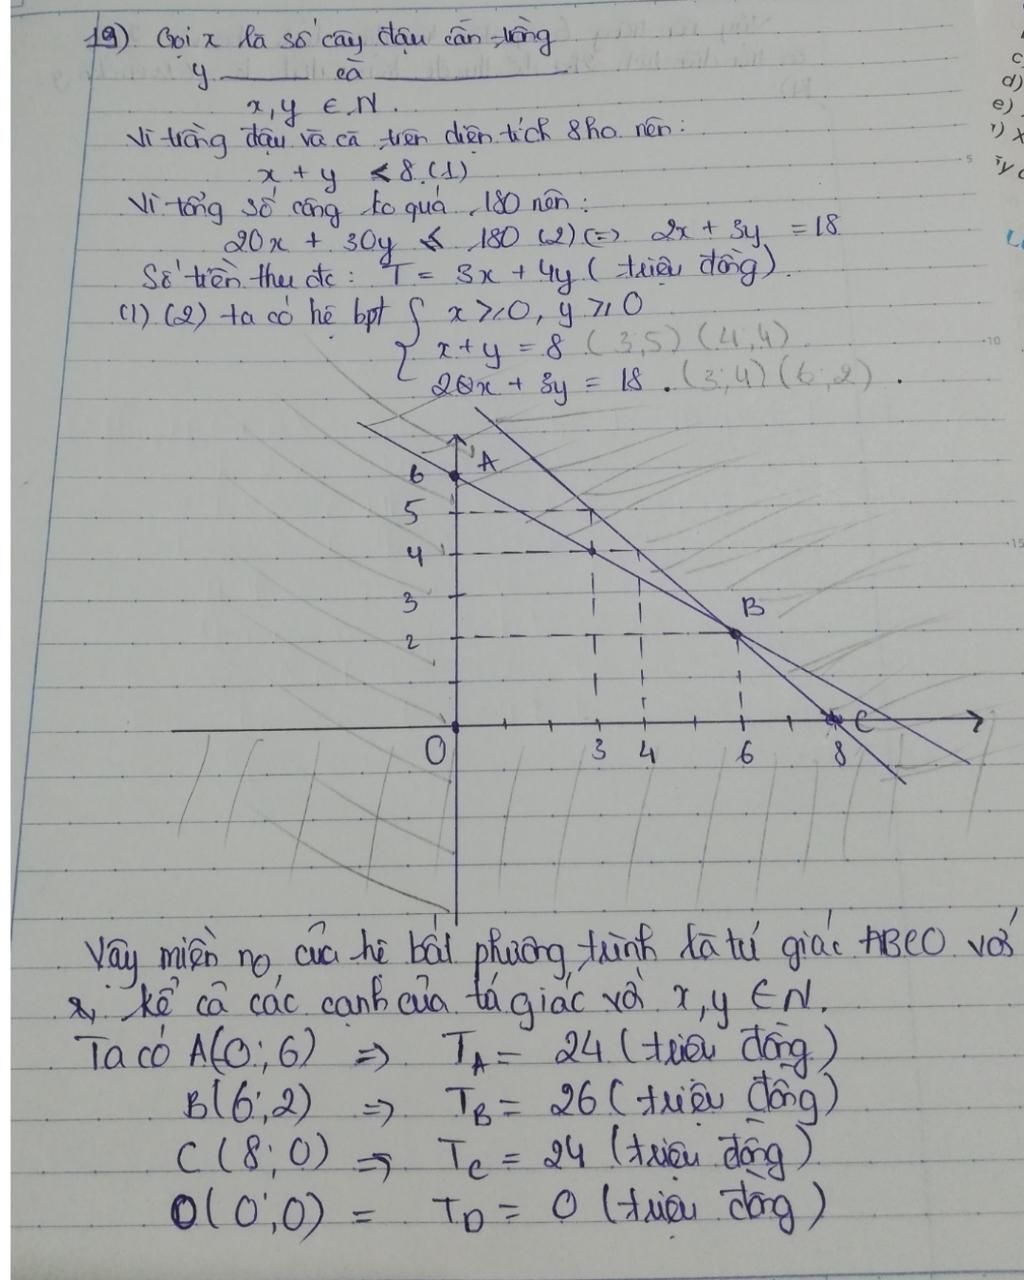 19) Gọi x là số cây đậu cần trồng
y ——— cà ———
x, y ∈ N.
Vì trồng đậu và cà trên diện tích 8ha nên:
x + y ≤ 8 (1)
Vì tổng số công ko quá 180 nên:
20x + 30y ≤ 180 (2) (=) 2x + 3y = 18
Số tiền thu đc: T = 3x + 4y (triệu đồng).
(1) (2) ta có hệ bpt { x ≥ 0, y ≥ 0
x + y = 8 (3;5) (4;4)
20x + 3y = 18. (3;4) (6;2).
6 A
5
4
3 B
2
O 3 4 6 8 C
Vậy miền no của hệ bất phương trình là tứ giác ABCO với
kể cả các cạnh của tá giác với x, y ∈ N.
Ta có A(0;6) => T_A = 24 (triệu đồng)
B(6;2) => T_B = 26 (triệu đồng)
C (8;0) => T_C = 24 (triệu đồng)
O(0;0) = T_O = 0 (triệu đồng)
c
d)
e)